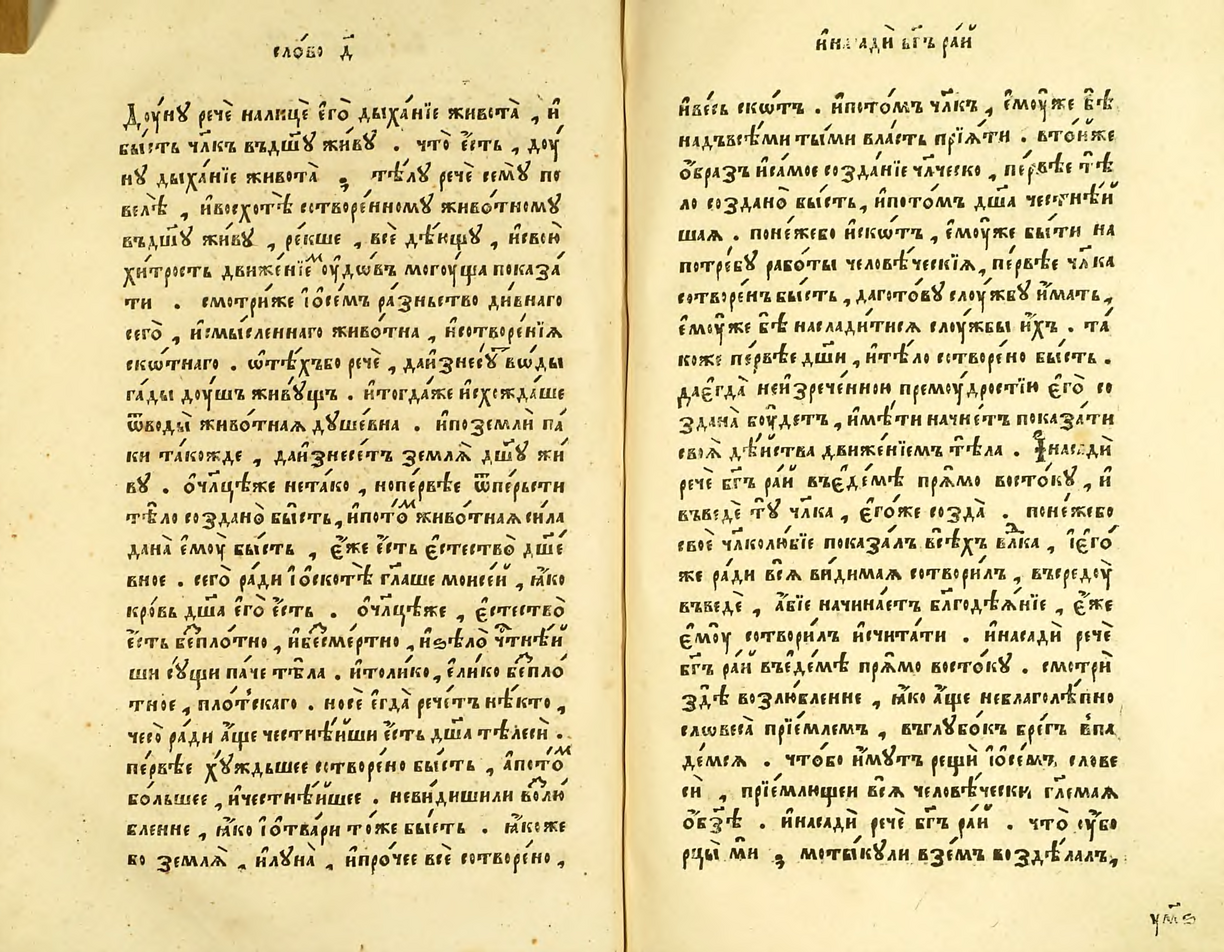 сло́во д҃
Доу́нꙋ речѐ налицѐ є҆го̀ дыха́нїе живота̀ , и҆
бы́сть чл҃къ въдш҃ꙋ жи́вꙋ . что̀ є҆́сть , доу́
нꙋ дыха́нїе живота̀ ; тѣ́лꙋ речѐ семꙋ̀ по
велѣ̀ , и҆восхотѣ̀ сотворе́нномꙋ живо́тномꙋ
въдш҃ꙋ жи́вꙋ , ре́кше , всѐ дѣ́ющꙋ , и҆свою̀
хи́трость движе́нїем оу҆́дѡвъ могоу́ща показа́
ти . смотри́же і҆ѻсе́мъ ра́зньство ди́внаго
сего̀ , и҆смы́сленнаго живо́тна , и҆сотворе́нїѧ
ско́тнаго . ѿтѣ́хъбо речѐ , даи҆знесꙋ́т во́ды
га́ды доу́шъ живꙋ́щъ . и҆тогда́же и҆схожда́ше
ѿводы̀ живо́тнаѧ дꙋше́вна . и҆поземлѝ па́
ки та́кожде , даи҆знесе́тъ землѧ̀ дш҃ꙋ жи́
вꙋ . ѻ҆чл҃цѣже нета́ко , нопе́рвѣе ѿпе́рьсти
тѣ́ло со́здано бы́сть , и҆пото́м живо́тнаѧ си́ла
дана̀ є҆моу̀ бы́сть , є҆́же є҆́сть є҆стество̀ дш҃е́
вное . сего̀ ра́ди і҆ѻскотѣ̀ гл҃аше моисе́й , ꙗ҆́ко
кро́вь дш҃а є҆го̀ є҆́сть . ѻ҆чл҃цѣже , є҆стество̀
є҆́сть беспло́тно , и҆бесме́ртно , и҆ѕѣло̀ чт҃нѣ́и
ши сꙋ́щи па́че тѣ́ла . и҆толи́ко , є҆ли́ко беспло́
тное , пло́тскаго . носѐ є҆гда̀ рече́тъ нѣ́кто ,
чесо̀ ра́ди а҆́ще честнѣ́йши є҆́сть дш҃а тѣ́леси .
пе́рвѣе хꙋ́ждьшее сотворе́но бы́сть , а҆пото́м
бо́льшее , и҆честнѣ́йшее . неви́дишили возлю́
бленне , ꙗ҆́ко і҆ѻтва́ри то́же бы́сть . ꙗ҆́коже
бо землѧ̀ , и҆лꙋна̀ , и҆про́чее всѐ сотворе́но ,
и҆насадѝ бг҃ъ ра́й
и҆ве́сь ско́тъ . и҆пото́мъ чл҃къ , є҆моу́же бѣ̀
надъвсѣ́ми ты́ми вла́сть прїѧ́ти . вто́йже
ѻ҆́бразъ и҆са́мое созда́нїе чл҃ческо , пе́рвѣе тѣ́
ло со́здано бы́сть , и҆пото́мъ дш҃а честнѣ́й
шаѧ . поне́жебо и҆ско́тъ , є҆моу́же бы́ти на
потре́бꙋ рабо́ты человѣ́ческїѧ , пе́рвѣе чл҃ка
сотворе́нъ бы́сть , даготовꙋ слоу́жбꙋ и҆́мать ,
є҆моу́же бѣ̀ наслади́тисѧ слоу́жбы и҆́хъ . та́
коже пе́рвѣе дш҃и , и҆тѣ́ло сотворено бы́сть .
дає҆гда̀ неизрече́нною премоу́дростїю є҆го̀ со́
здана̀ боу́детъ , и҆мѣ́ти начне́тъ показа́ти
своѧ̀ дѣ́йства движе́нїемъ тѣ́ла . И҆насадѝ
речѐ бг҃ъ ра́й въє҆де́мѣ прѧ́мо восто́кꙋ , и҆
въведѐ тꙋ̀ чл҃ка , є҆го́же созда̀ . поне́жебо
своѐ чл҃колю́бїе показа́лъ всѣ́хъ влⷣка , і҆є҆го́
же ра́ди всѧ̀ ви́димаѧ сотвори́лъ , въсредоу̀
въведѐ , а҆́бїе начина́етъ бл҃годѣѧ́нїе , є҆́же
є҆моу̀ сотвори́лъ и҆счита́ти . и҆насадѝ речѐ
бг҃ъ ра́й въє҆де́мѣ прѧ́мо восто́кꙋ . смотрѝ
здѣ̀ возлю́бленне , ꙗ҆́ко а҆́ще неблаголѣ́пно
словеса̀ прїе́млемъ , въглꙋбо́къ бре́гъ впа
де́мсѧ . что́бо и҆́мꙋтъ рещѝ і҆ѻсе́мъ словесѝ , прїе́млющеи всѧ̀ человѣ́чески гл҃емаѧ
ѻ҆бз҃ѣ . и҆насадѝ речѐ бг҃ъ ра́й . что̀ оу҆́бо
рцы̀ мѝ ; моты́кꙋли взе́мъ воздѣ́лалъ ,